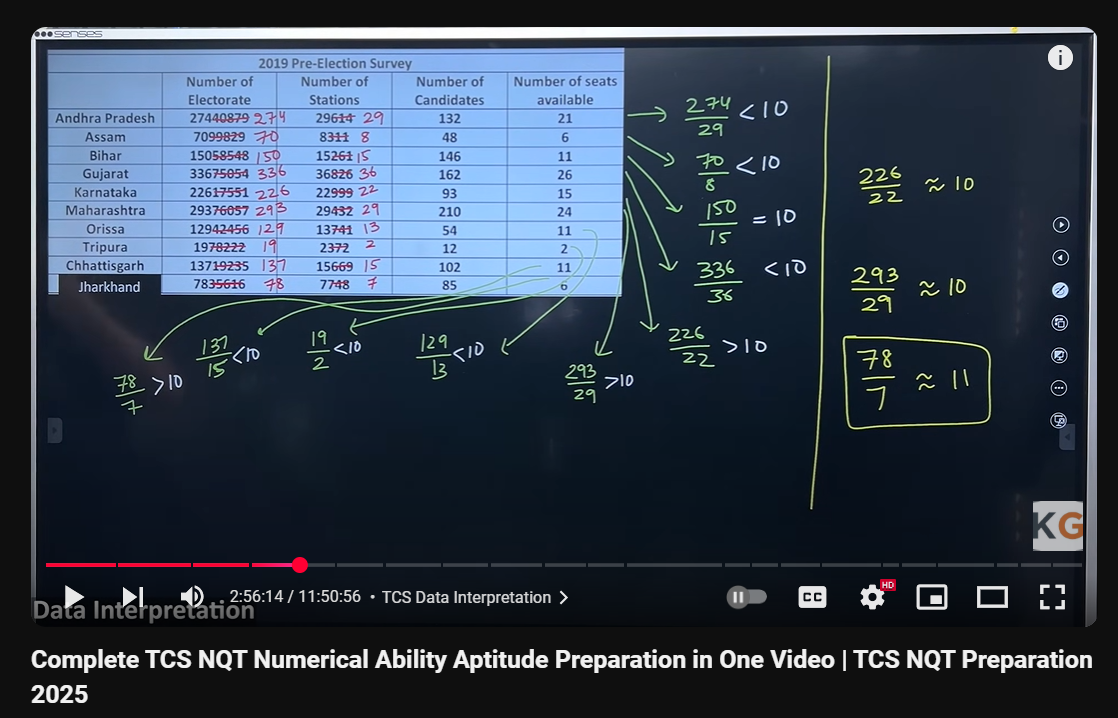 senses
2019 Pre-Election Survey
Number of Electorate Number of Stations Number of Candidates Number of seats available
Andhra Pradesh 27440879 274 29614 29 132 21
Assam 7099829 70 8311 8 48 6
Bihar 15058548 150 15261 15 146 11
Gujarat 33675054 336 36826 36 162 26
Karnataka 22617551 226 22999 22 93 15
Maharashtra 29376057 293 29432 29 210 24
Orissa 12942456 129 13741 13 54 11
Tripura 1978222 19 2372 2 12 2
Chhattisgarh 13719235 137 15669 15 102 11
Jharkhand 7835616 78 7748 7 85 6
274/29 < 10
70/8 < 10
150/15 = 10
336/36 < 10
226/22 > 10
293/29 > 10
129/13 < 10
19/2 < 10
137/15 < 10
78/7 > 10
226/22 ≈ 10
293/29 ≈ 10
78/7 ≈ 11
KG
2:56:14 / 11:50:56 • TCS Data Interpretation
CC
HD
Data Interpretation
Complete TCS NQT Numerical Ability Aptitude Preparation in One Video | TCS NQT Preparation
2025